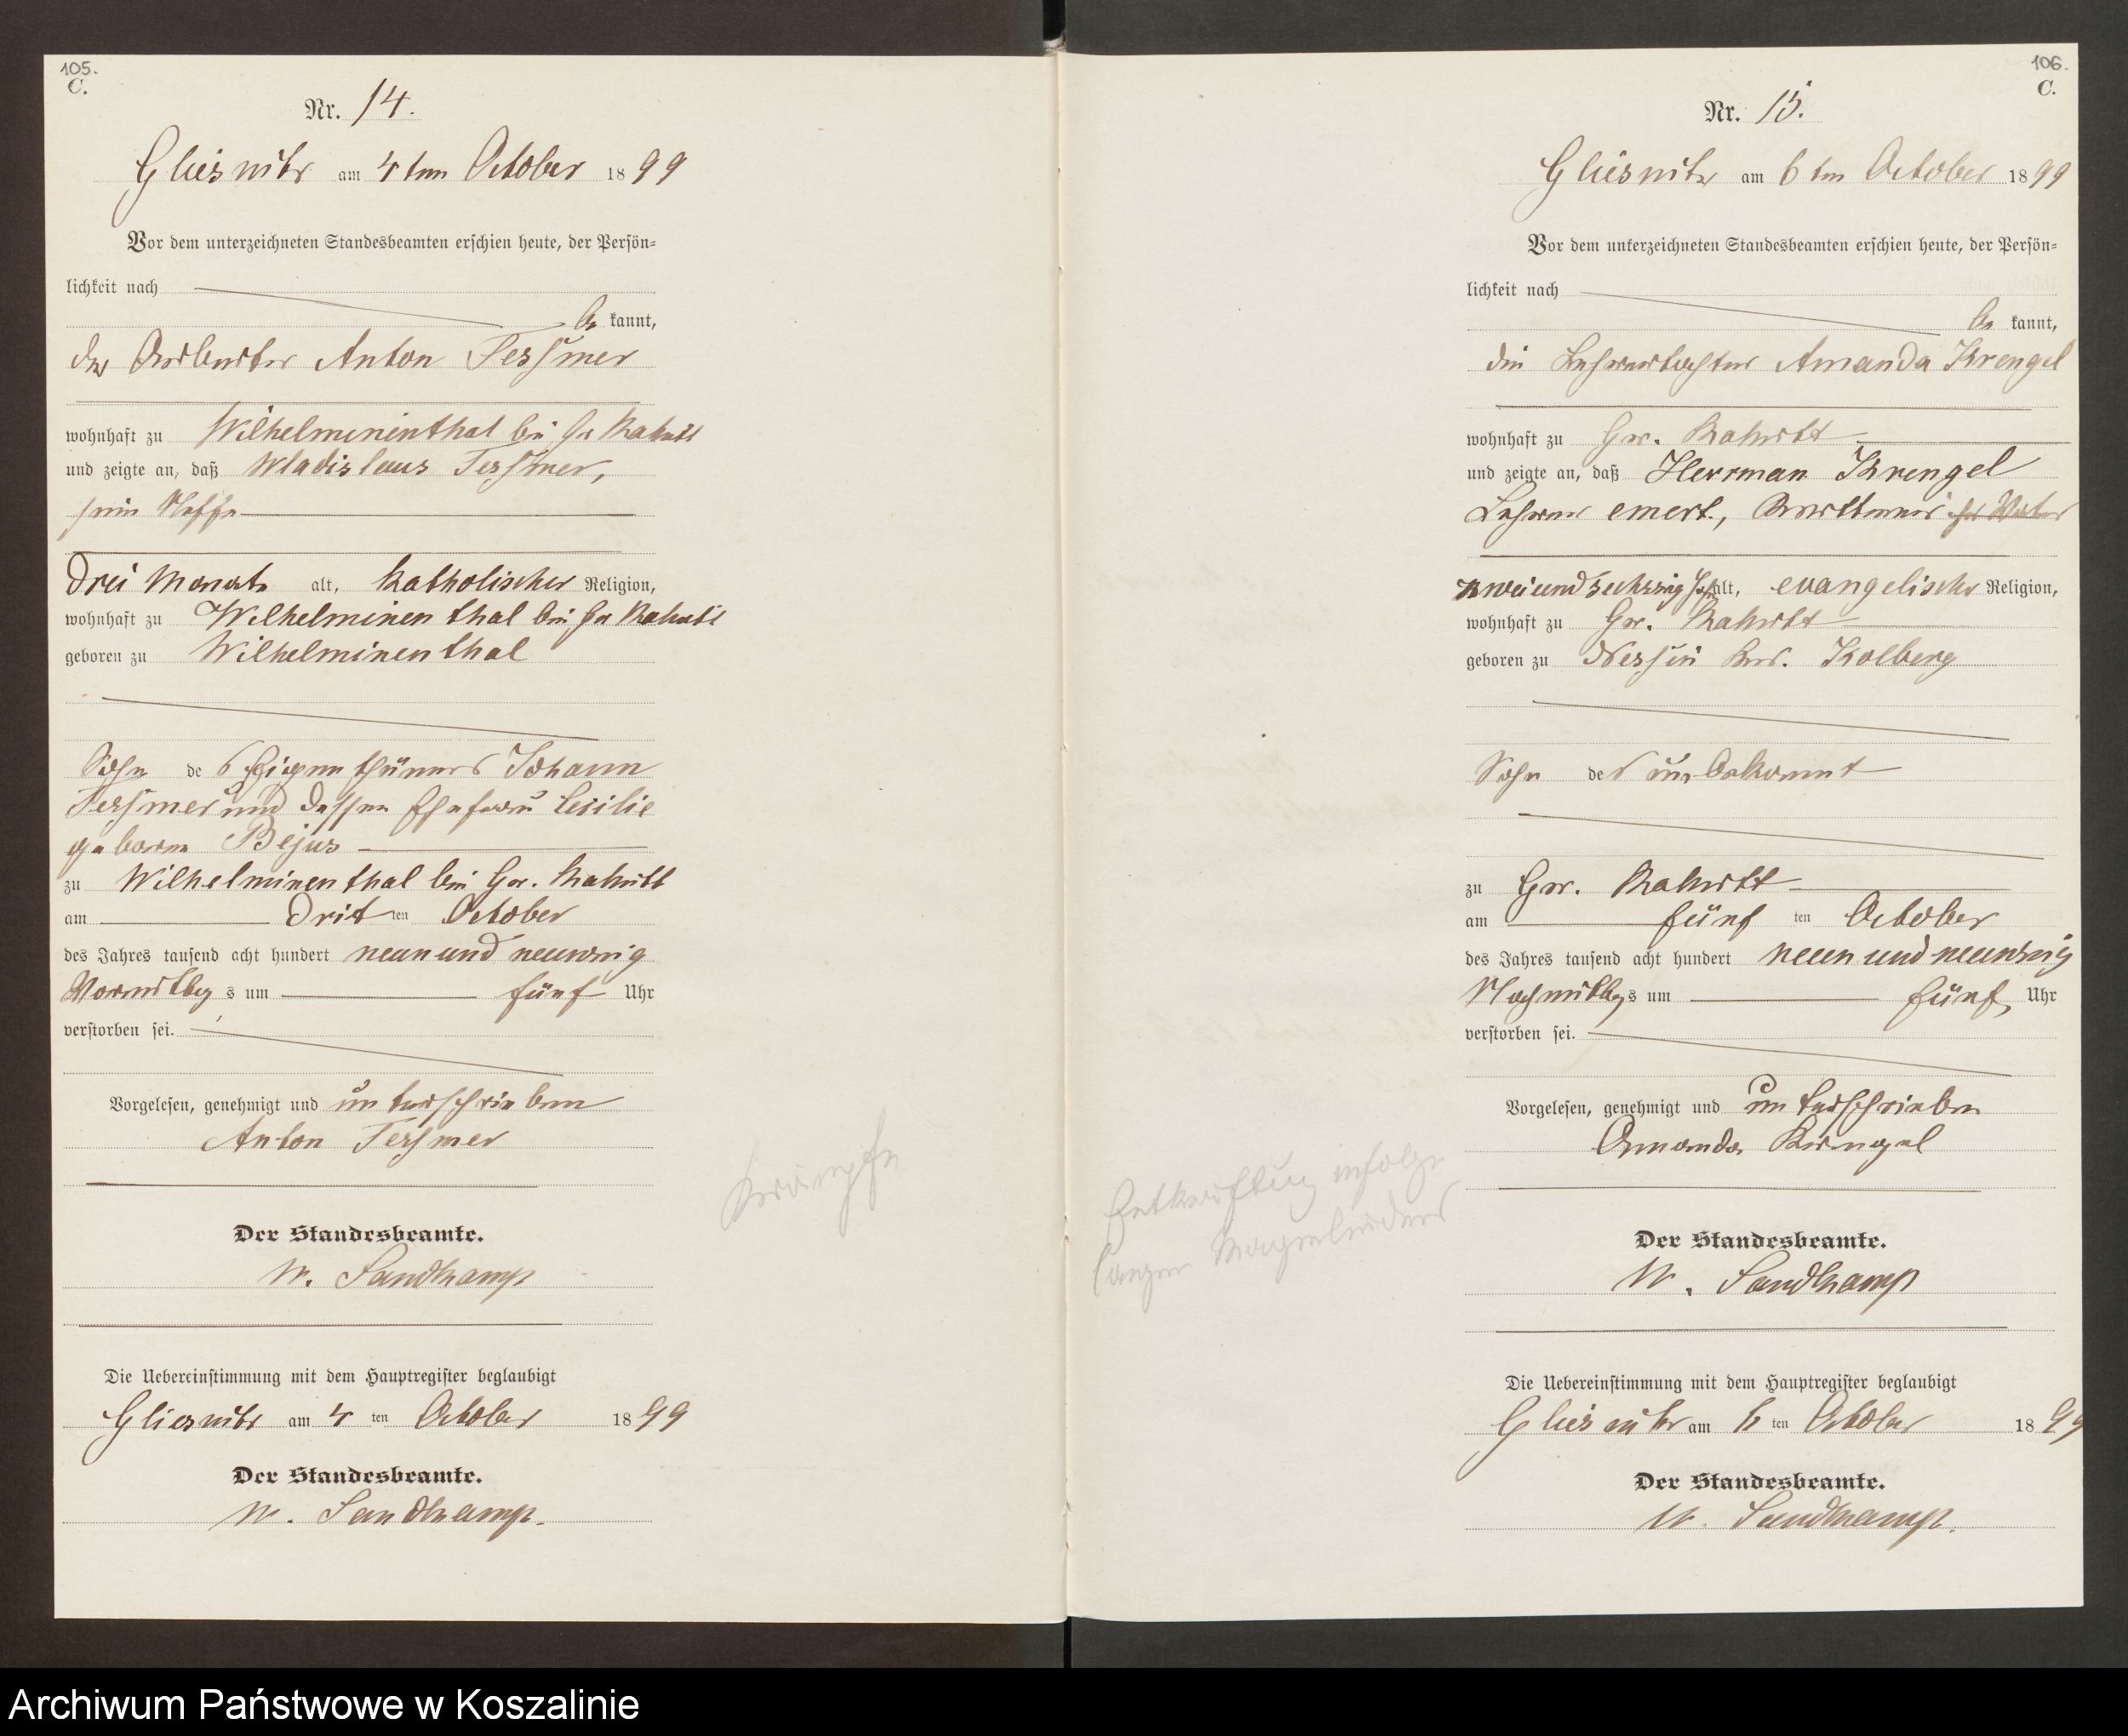 105.
C.
Nr. 14.
Gliesnitz am 4ten October 1899
Vor dem unterzeichneten Standesbeamten erschien heute, der Persön-
lichkeit nach
be kannt,
der Arbeiter Anton Teßmer
wohnhaft zu Wilhelminenthal bei Gr Rakitt
und zeigte an, daß Wladislaus Teßmer,
sein Neffe
drei Monate alt, katholischer Religion,
wohnhaft zu Wilhelminenthal bei Gr Rakitt
geboren zu Wilhelminenthal
Sohn des Eigenthümers Johann
Teßmer und dessen Ehefrau Cecilie
geborne Bejus
zu Wilhelminenthal bei Gr. Rakitt
am dritten October
des Jahres tausend acht hundert neun und neunzig
Vormittags um fünf Uhr
verstorben sei.
Vorgelesen, genehmigt und unterschrieben
Anton Teßmer
Krämpfe
Der Standesbeamte.
W. Sandkamp
Die Uebereinstimmung mit dem Hauptregister beglaubigt
Gliesnitz am 4 ten October 1899
Der Standesbeamte.
W. Sandkamp.
106.
C.
Nr. 15.
Gliesnitz am 6ten October 1899
Vor dem unterzeichneten Standesbeamten erschien heute, der Persön-
lichkeit nach
be kannt,
die Lehrertochter Amanda Krengel
wohnhaft zu Gr. Rakitt
und zeigte an, daß Herrman Krengel
Lehrer emert., ihr Vater
zweiundsechzig Jahr alt, evangelischer Religion,
wohnhaft zu Gr. Rakitt
geboren zu Nessin Krs. Kolberg
Sohn des unbekannt
zu Gr. Rakitt
am fünf ten October
des Jahres tausend acht hundert neun und neunzig
Nachmittags um fünf Uhr
verstorben sei.
Vorgelesen, genehmigt und unterschrieben
Amanda Krengel
Entkräftung infolge
langen Magenleidens
Der Standesbeamte.
W. Sandkamp
Die Uebereinstimmung mit dem Hauptregister beglaubigt
Gliesnitz am 6 ten October 1899
Der Standesbeamte.
W. Sandkamp.
Archiwum Państwowe w Koszalinie